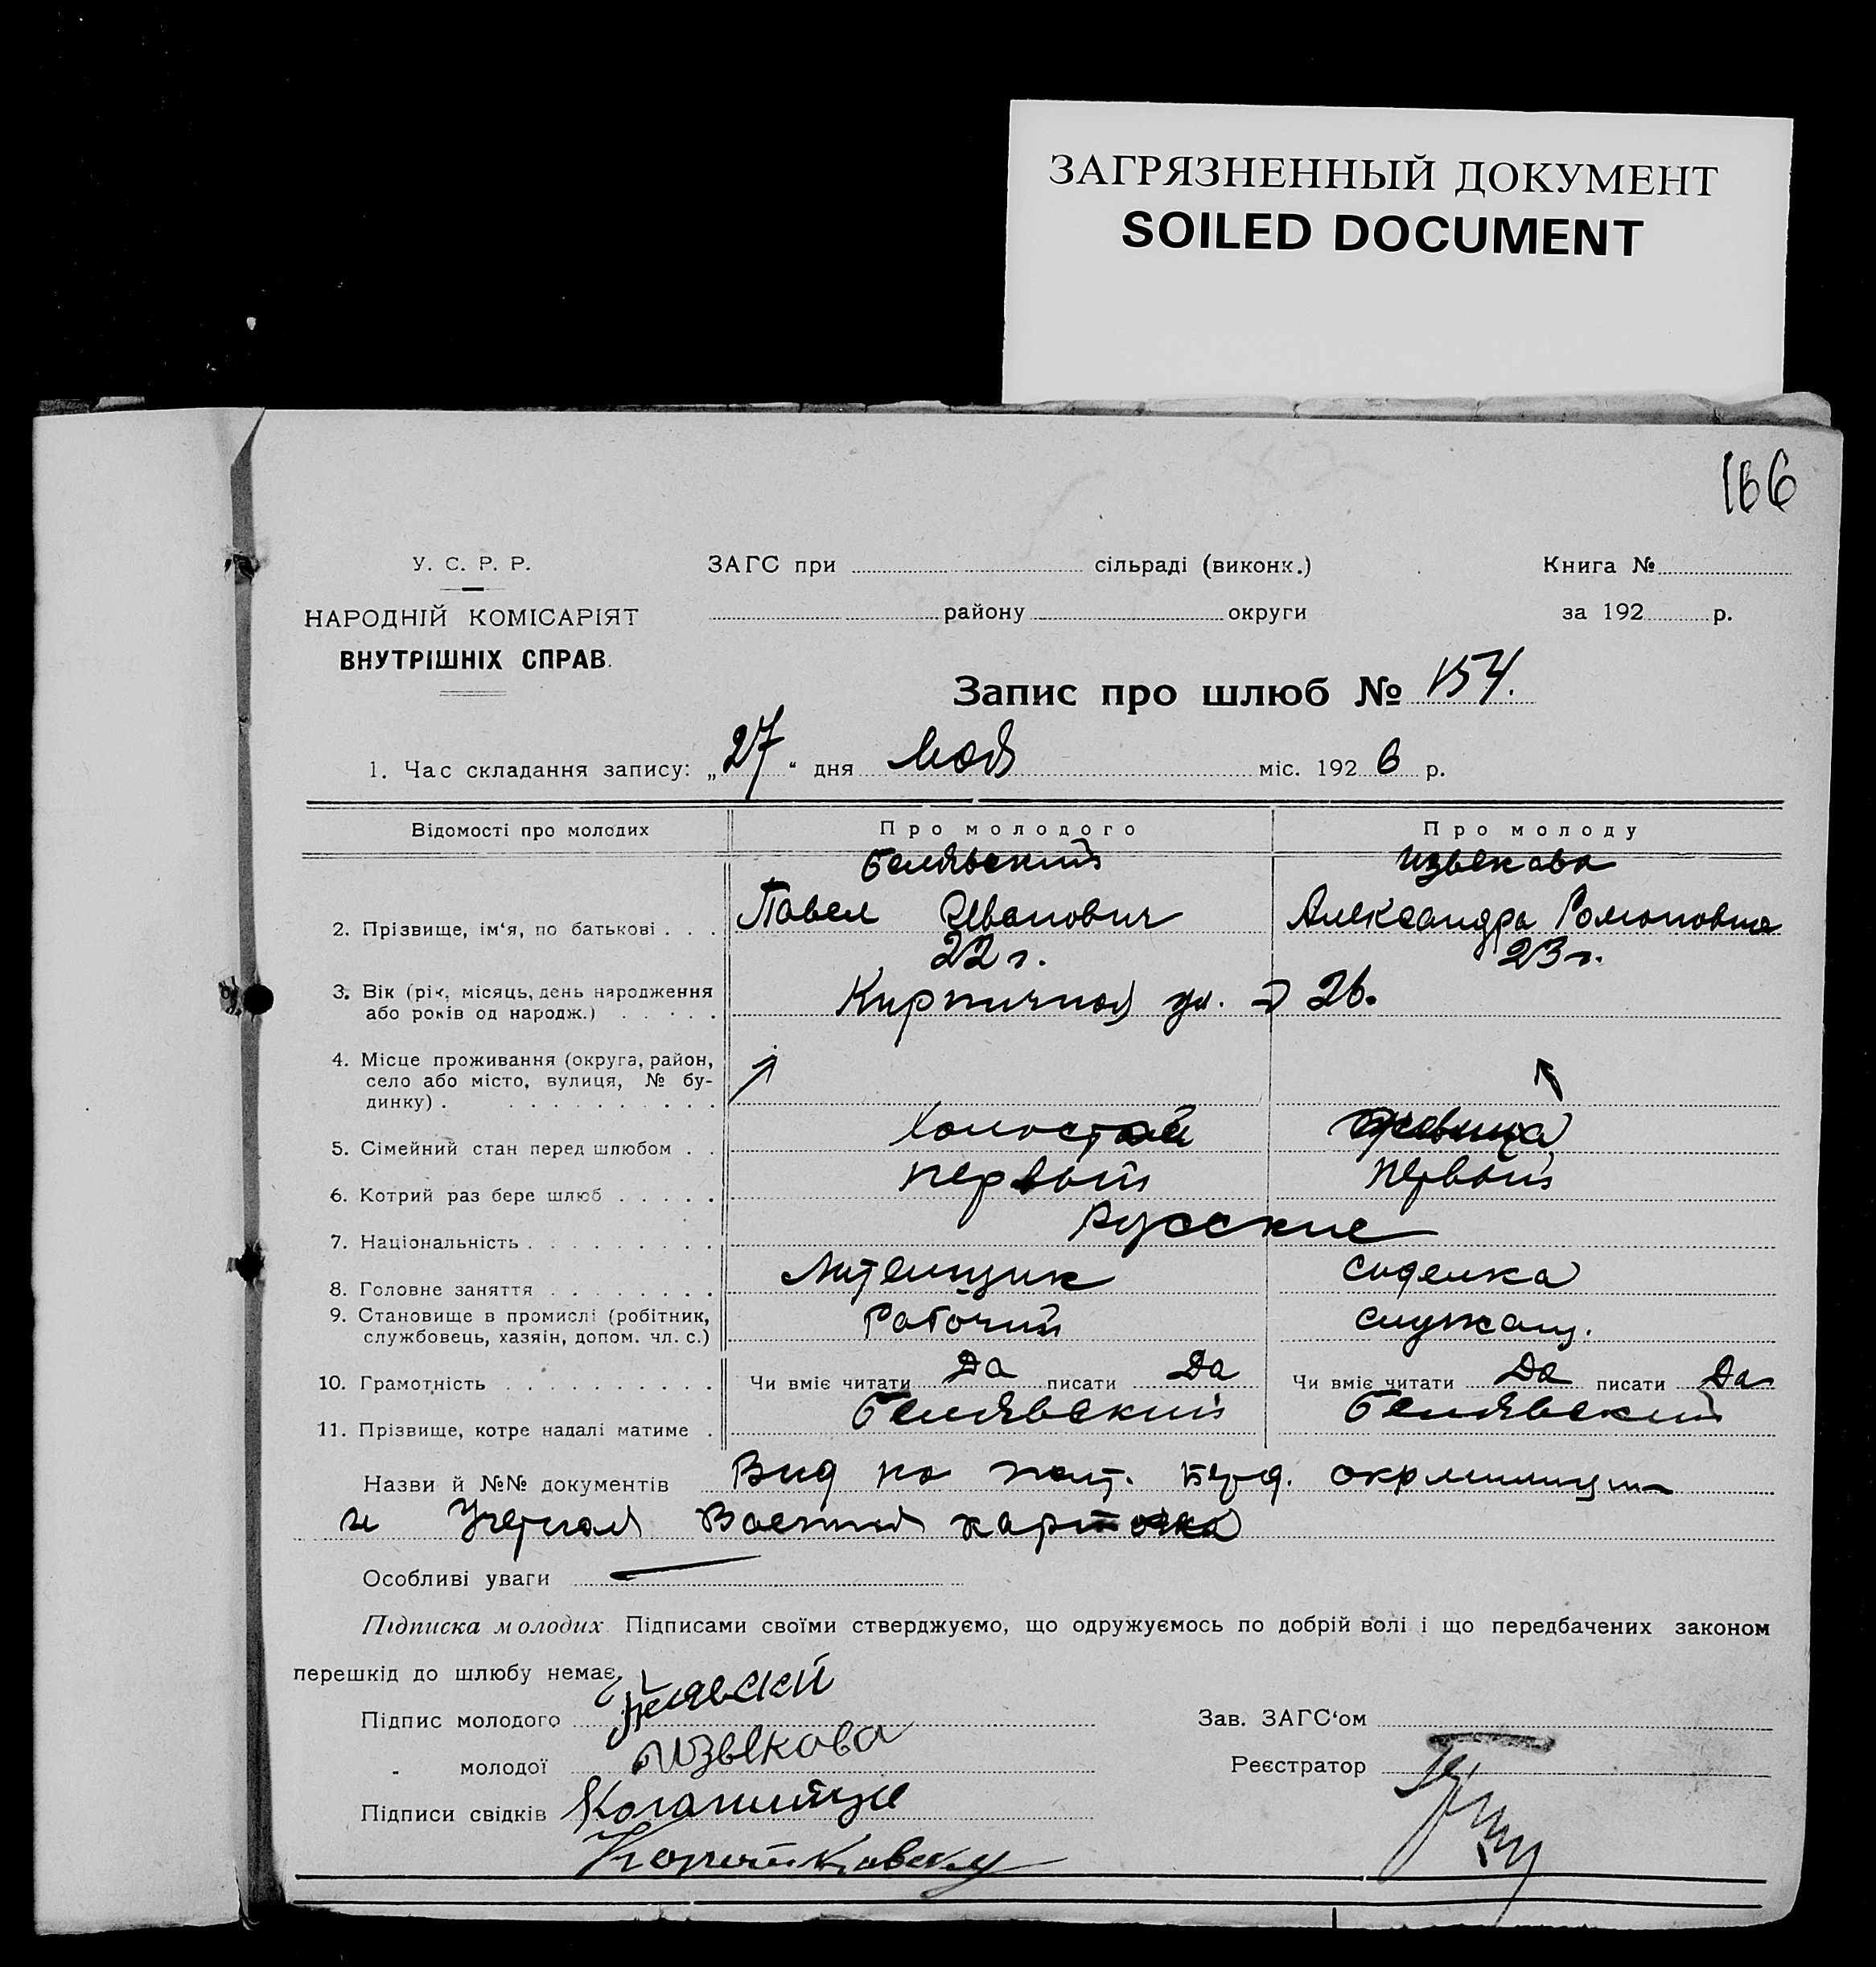 ЗАГРЯЗНЕННЫЙ ДОКУМЕНТ
SOILED DOCUMENT
166
У. С. Р. Р.
НАРОДНІЙ КОМІСАРІЯТ
ВНУТРІШНІХ СПРАВ.
ЗАГС при сільраді (виконк.)
району округи
Книга №
за 192 р.
Запис про шлюб № 154.
1. Час складання запису: „27“ дня мая міс. 1926 р.
Відомості про молодих Про молодого Про молоду
Белявский Извекова
2. Прізвище, ім'я, по батькові . . . Павел Иванович Александра Романовна
22 г. 23 г.
3. Вік (рік, місяць, день народження
або років од народж.) . . . . . Кирпичная ул. 26.
4. Місце проживання (округа, район,
село або місто, вулиця, № бу-
динку) . . . . . . . . . . .
5. Сімейний стан перед шлюбом . . Холостой девица
6. Котрий раз бере шлюб . . . . . первый первый
7. Національність . . . . . . . . . Русские
8. Головне заняття . . . . . . . . Литейщик сиделка
9. Становище в промислі (робітник,
службовець, хазяін, допом. чл. с.) Рабочий служащ.
10. Грамотність . . . . . . . . . . Чи вміє читати Да писати Да Чи вміє читати Да писати Да
11. Прізвище, котре надалі матиме . Белявский Белявский
Назви й №№ документів Вид на жит. Берд. окрмилиции
и Учетная Военная карточка
Особливі уваги
Підписка молодих. Підписами своїми стверджуємо, що одружуємось по добрій волі і що передбачених законом
перешкід до шлюбу немає.
Підпис молодого Белявский
„ молодої Извекова
Підписи свідків
Зав. ЗАГС'ом
Реєстратор